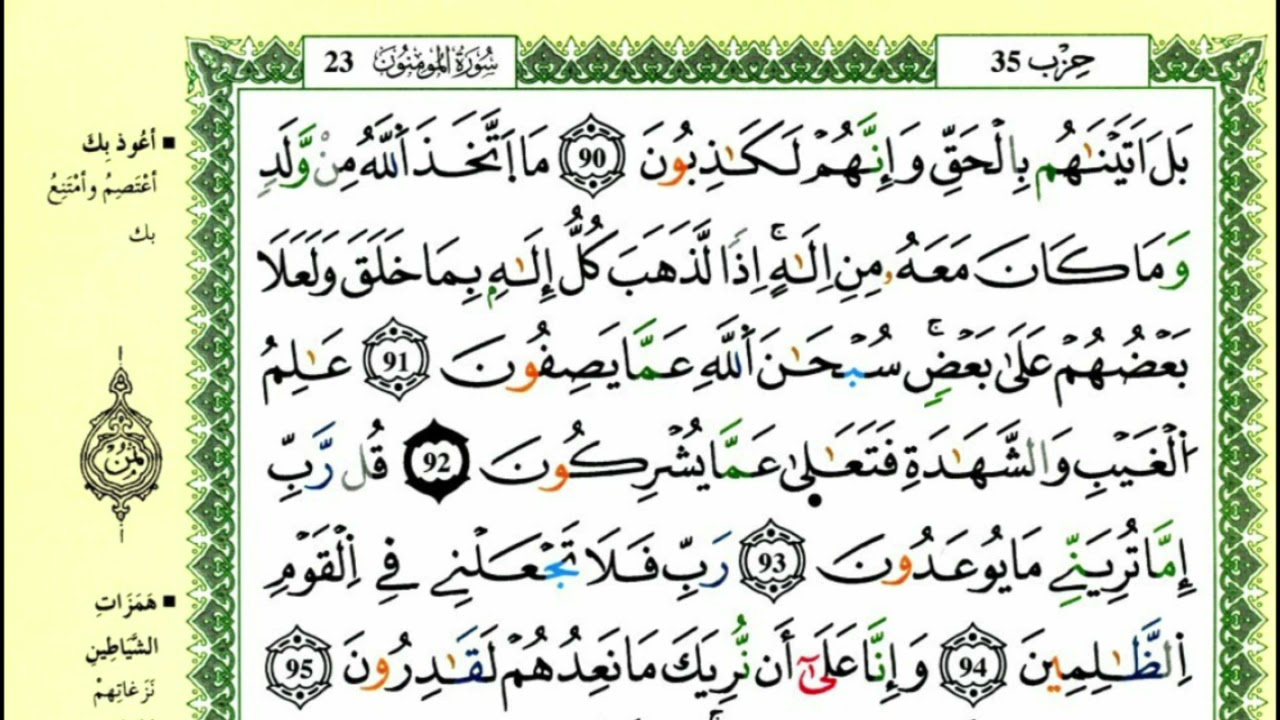 حِزْب 35
سُورَةُ الْمُومِنُونَ 23
بَلَ اَتَيْنَـٰهُم بِالْحَقِّ وَإِنَّهُمْ لَكَـٰذِبُونَ 90 مَا اَتَّخَذَ اَللَّهُ مِنْ وَّلَدٍ
وَمَا كَانَ مَعَهُۥ مِنِ اِلَـٰهٍ إِذاً لَّذَهَبَ كُلُّ إِلَـٰهِۢ بِمَا خَلَقَ وَلَعَلَا
بَعْضُهُمْ عَلَىٰ بَعْضٍ سُبْحَـٰنَ اَللَّهِ عَمَّا يَصِفُونَ 91 عَـٰلِمُ
اُلْغَيْبِ وَالشَّهَـٰدَةِ فَتَعَـٰلَىٰ عَمَّا يُشْرِكُونَ 92 قُل رَّبِّ
إِمَّا تُرِيَنِّے مَا يُوعَدُونَ 93 رَبِّ فَلَا تَجْعَلْنِے فِے اِلْقَوْمِ
اِلظَّـٰلِمِينَ 94 وَإِنَّا عَلَىٰٓ أَن نُّرِيَكَ مَا نَعِدُهُمْ لَقَـٰدِرُونَ 95
أعُوذ بِكَ
أعْتَصِمُ وأمْتَنِعُ
بك
هَمَزَاتِ
الشَّيَاطِينِ
نَزَغَاتِهِمْ